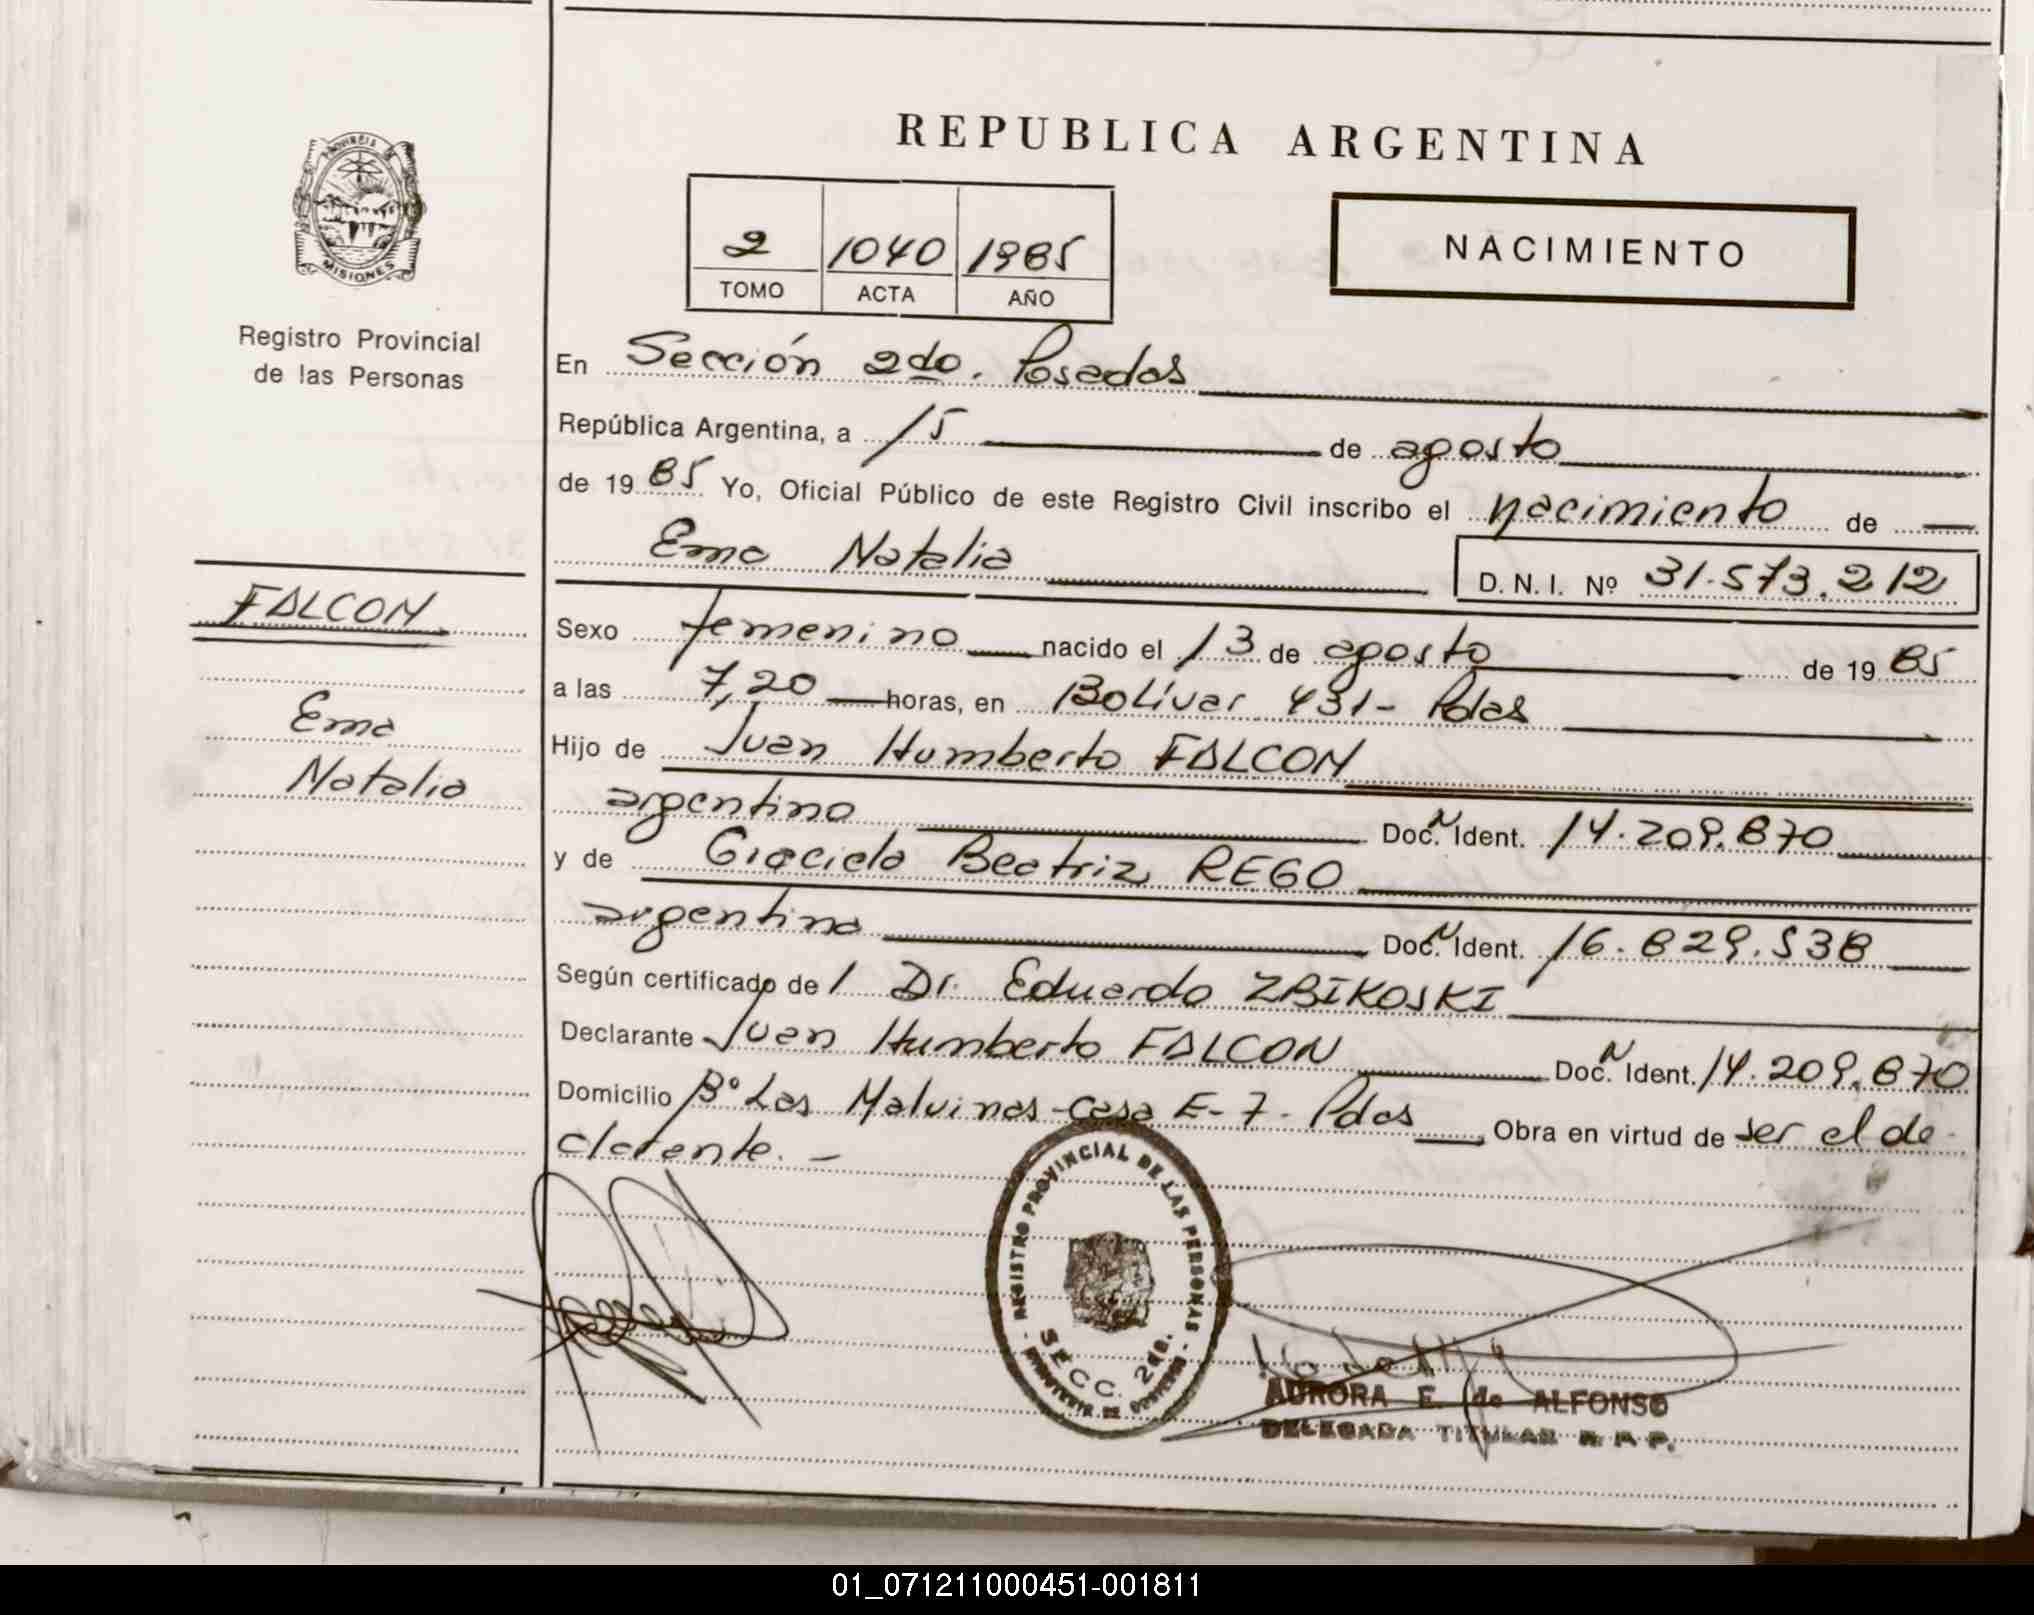 REPUBLICA ARGENTINA
PROVINCIA DE
MISIONES
Registro Provincial
de las Personas
2 1040 1985
TOMO ACTA AÑO
NACIMIENTO
En Sección 2da. Posadas
República Argentina, a 15 de agosto
de 1985 Yo, Oficial Público de este Registro Civil inscribo el nacimiento de
Ema Natalia
D. N. I. Nº 31.573.212
FALCON
Ema
Natalia
Sexo femenino nacido el 13 de agosto de 1985
a las 7,20 horas, en Bolívar 431- Pdas
Hijo de Juan Humberto FALCON
argentino Doc. N Ident. 14.209.870
y de Graciela Beatriz REGO
argentina Doc. N Ident. 16.829.538
Según certificado de / Dr. Eduardo ZBIKOSKI
Declarante Juan Humberto FALCON Doc. N Ident. 14.209.870
Domicilio Bº Las Malvinas-casa E-7- Pdas Obra en virtud de ser el de-
clarante.-
REGISTRO PROVINCIAL DE LAS PERSONAS
SECC. 2da.
MINISTERIO DE GOBIERNO
AURORA E. de ALFONSO
DELEGADA TITULAR R.P.P.
01_071211000451-001811